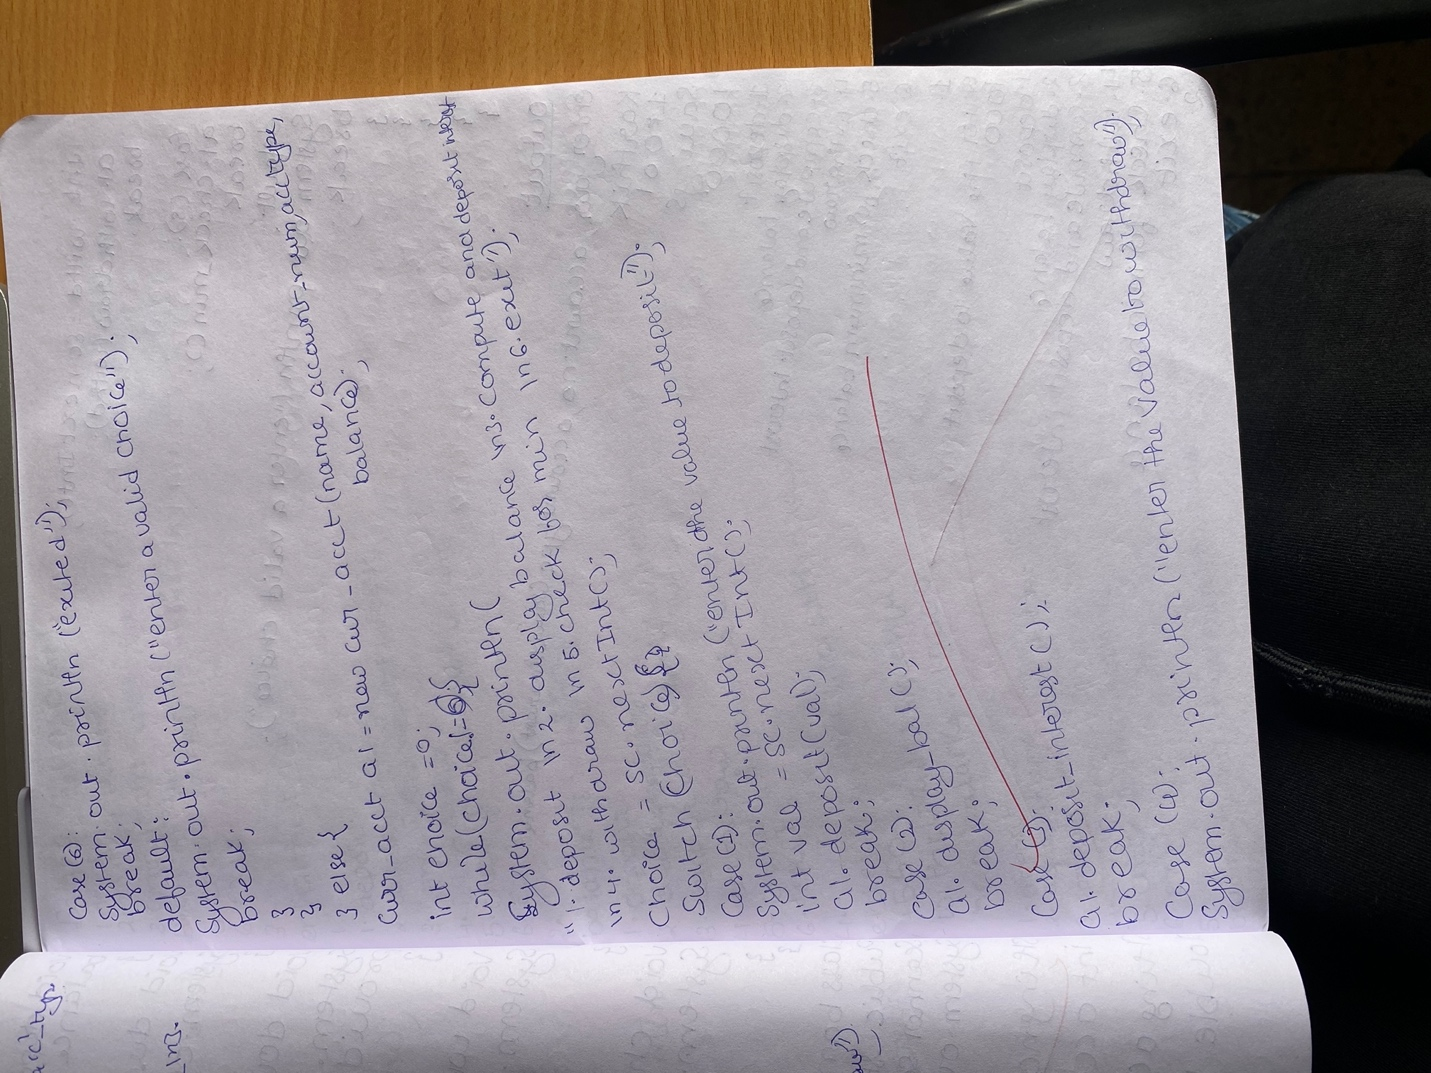 Case (6):
System.out.println ("exited");
break;
default:
System.out.println ("enter a valid choice");
break;
}
}
} else {
curr-acct a1 = new curr-acct (name, account_num, acctype,
balance);
int choice = 0;
while (choice != 6) {
System.out.println (
"1. deposit \n 2. display balance \n 3. compute and deposit interest
\n 4. withdraw \n 5. check for min \n 6. exit");
choice = sc.nextInt();
Switch (choice) {
Case (1):
System.out.println ("enter the value to deposit");
int val = sc.nextInt();
a1.deposit (val);
break;
Case (2):
a1.display_bal();
break;
Case (3):
a1.deposit_interest();
break;
Case (4):
System.out.println ("enter the value to withdraw");
acc_type
\n 3.